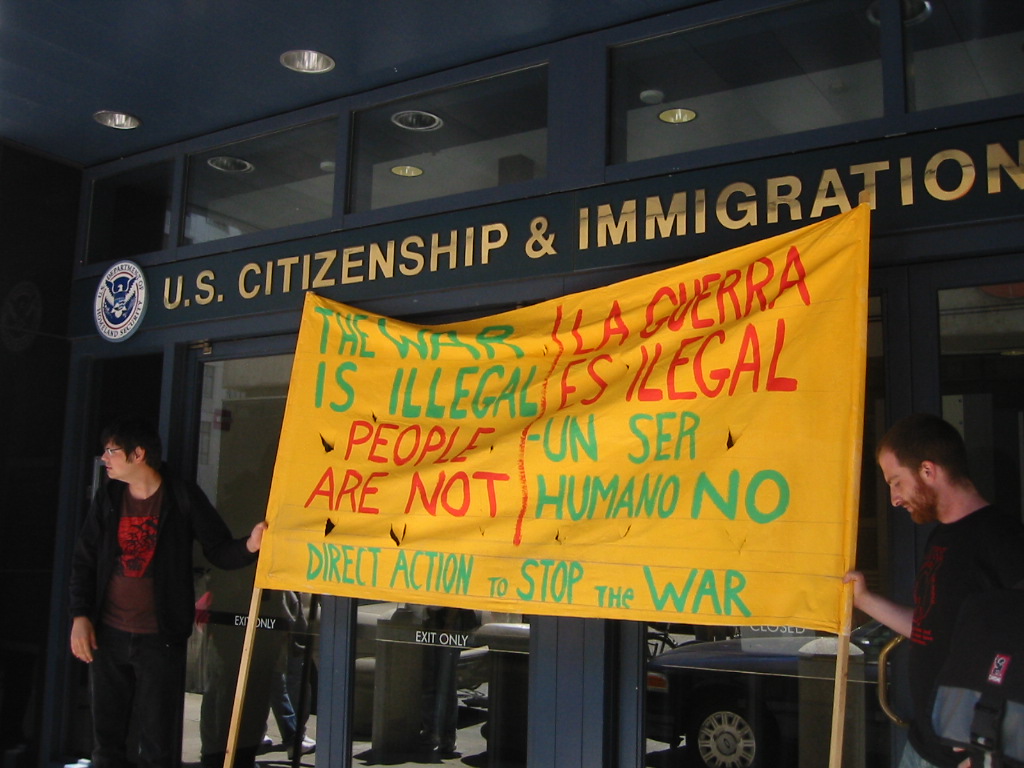 U.S. CITIZENSHIP & IMMIGRATION
U.S. DEPARTMENT OF HOMELAND SECURITY
THE WAR
IS ILLEGAL
PEOPLE
ARE NOT
LA GUERRA
ES ILEGAL
-UN SER
HUMANO NO
DIRECT ACTION TO STOP THE WAR
EXIT ONLY
EXIT ONLY
CLOSED